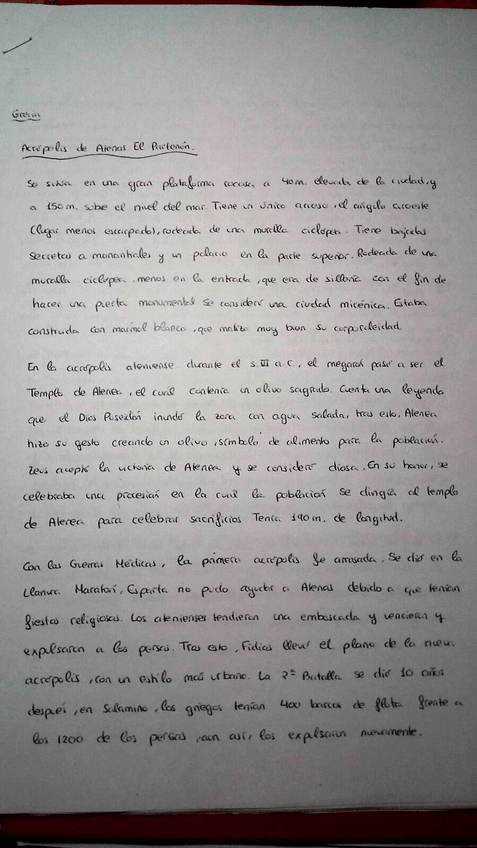 Grecia
Acrópolis de Atenas. El Partenón.
Se sitúa en una gran plataforma rocosa a 40 m. elevada de la ciudad, y
a 150 m. sobre el nivel del mar. Tiene un único acceso, el ángulo oroeste
(lugar menos escarpado), rodeada de una muralla ciclópea. Tiene bajadas
secretas a manantiales y un palacio en la parte superior. Rodeada de una
muralla ciclópea, menos en la entrada, que era de sillería con el fin de
hacer una puerta monumental se consideró una ciudad micénica. Estaba
construida con marmol blanco, que matiza muy bien su corporeidad.
En la acrópolis ateniense durante el s. a.c., el megaron pasó a ser el
Templo de Atenea, el cual contenía un olivo sagrado. Cuenta una leyenda
que el Dios Poseidón inundó la zona con agua salada, tras esto, Atenea
hizo su gesto creando un olivo, símbolo de alimento para la población.
Zeus aceptó la victoria de Atenea y se consideró diosa. En su honor, se
celebraba una procesión en la cual la población se dirigía al templo
de Atenea para celebrar sacrificios Tenía 190 m. de longitud.
Con las Guerras Médicas, la primera acrópolis fue arrasada. Se dió en la
Llanura Maratón, Esparta no pudo ayudar a Atenas debido a que tenían
fiestas religiosas. Los atenienses tendieron una emboscada y vencieron y
expulsaron a los persas. Tras esto, Fidias llevó el plano de la nueva
acrópolis, con un estilo más urbano. La 2ª Batalla se dió 10 años
después, en Salamina, los griegos tenían 400 barcos de flota frente a
los 1200 de los persas, aun así, los expulsaron nuevamente.